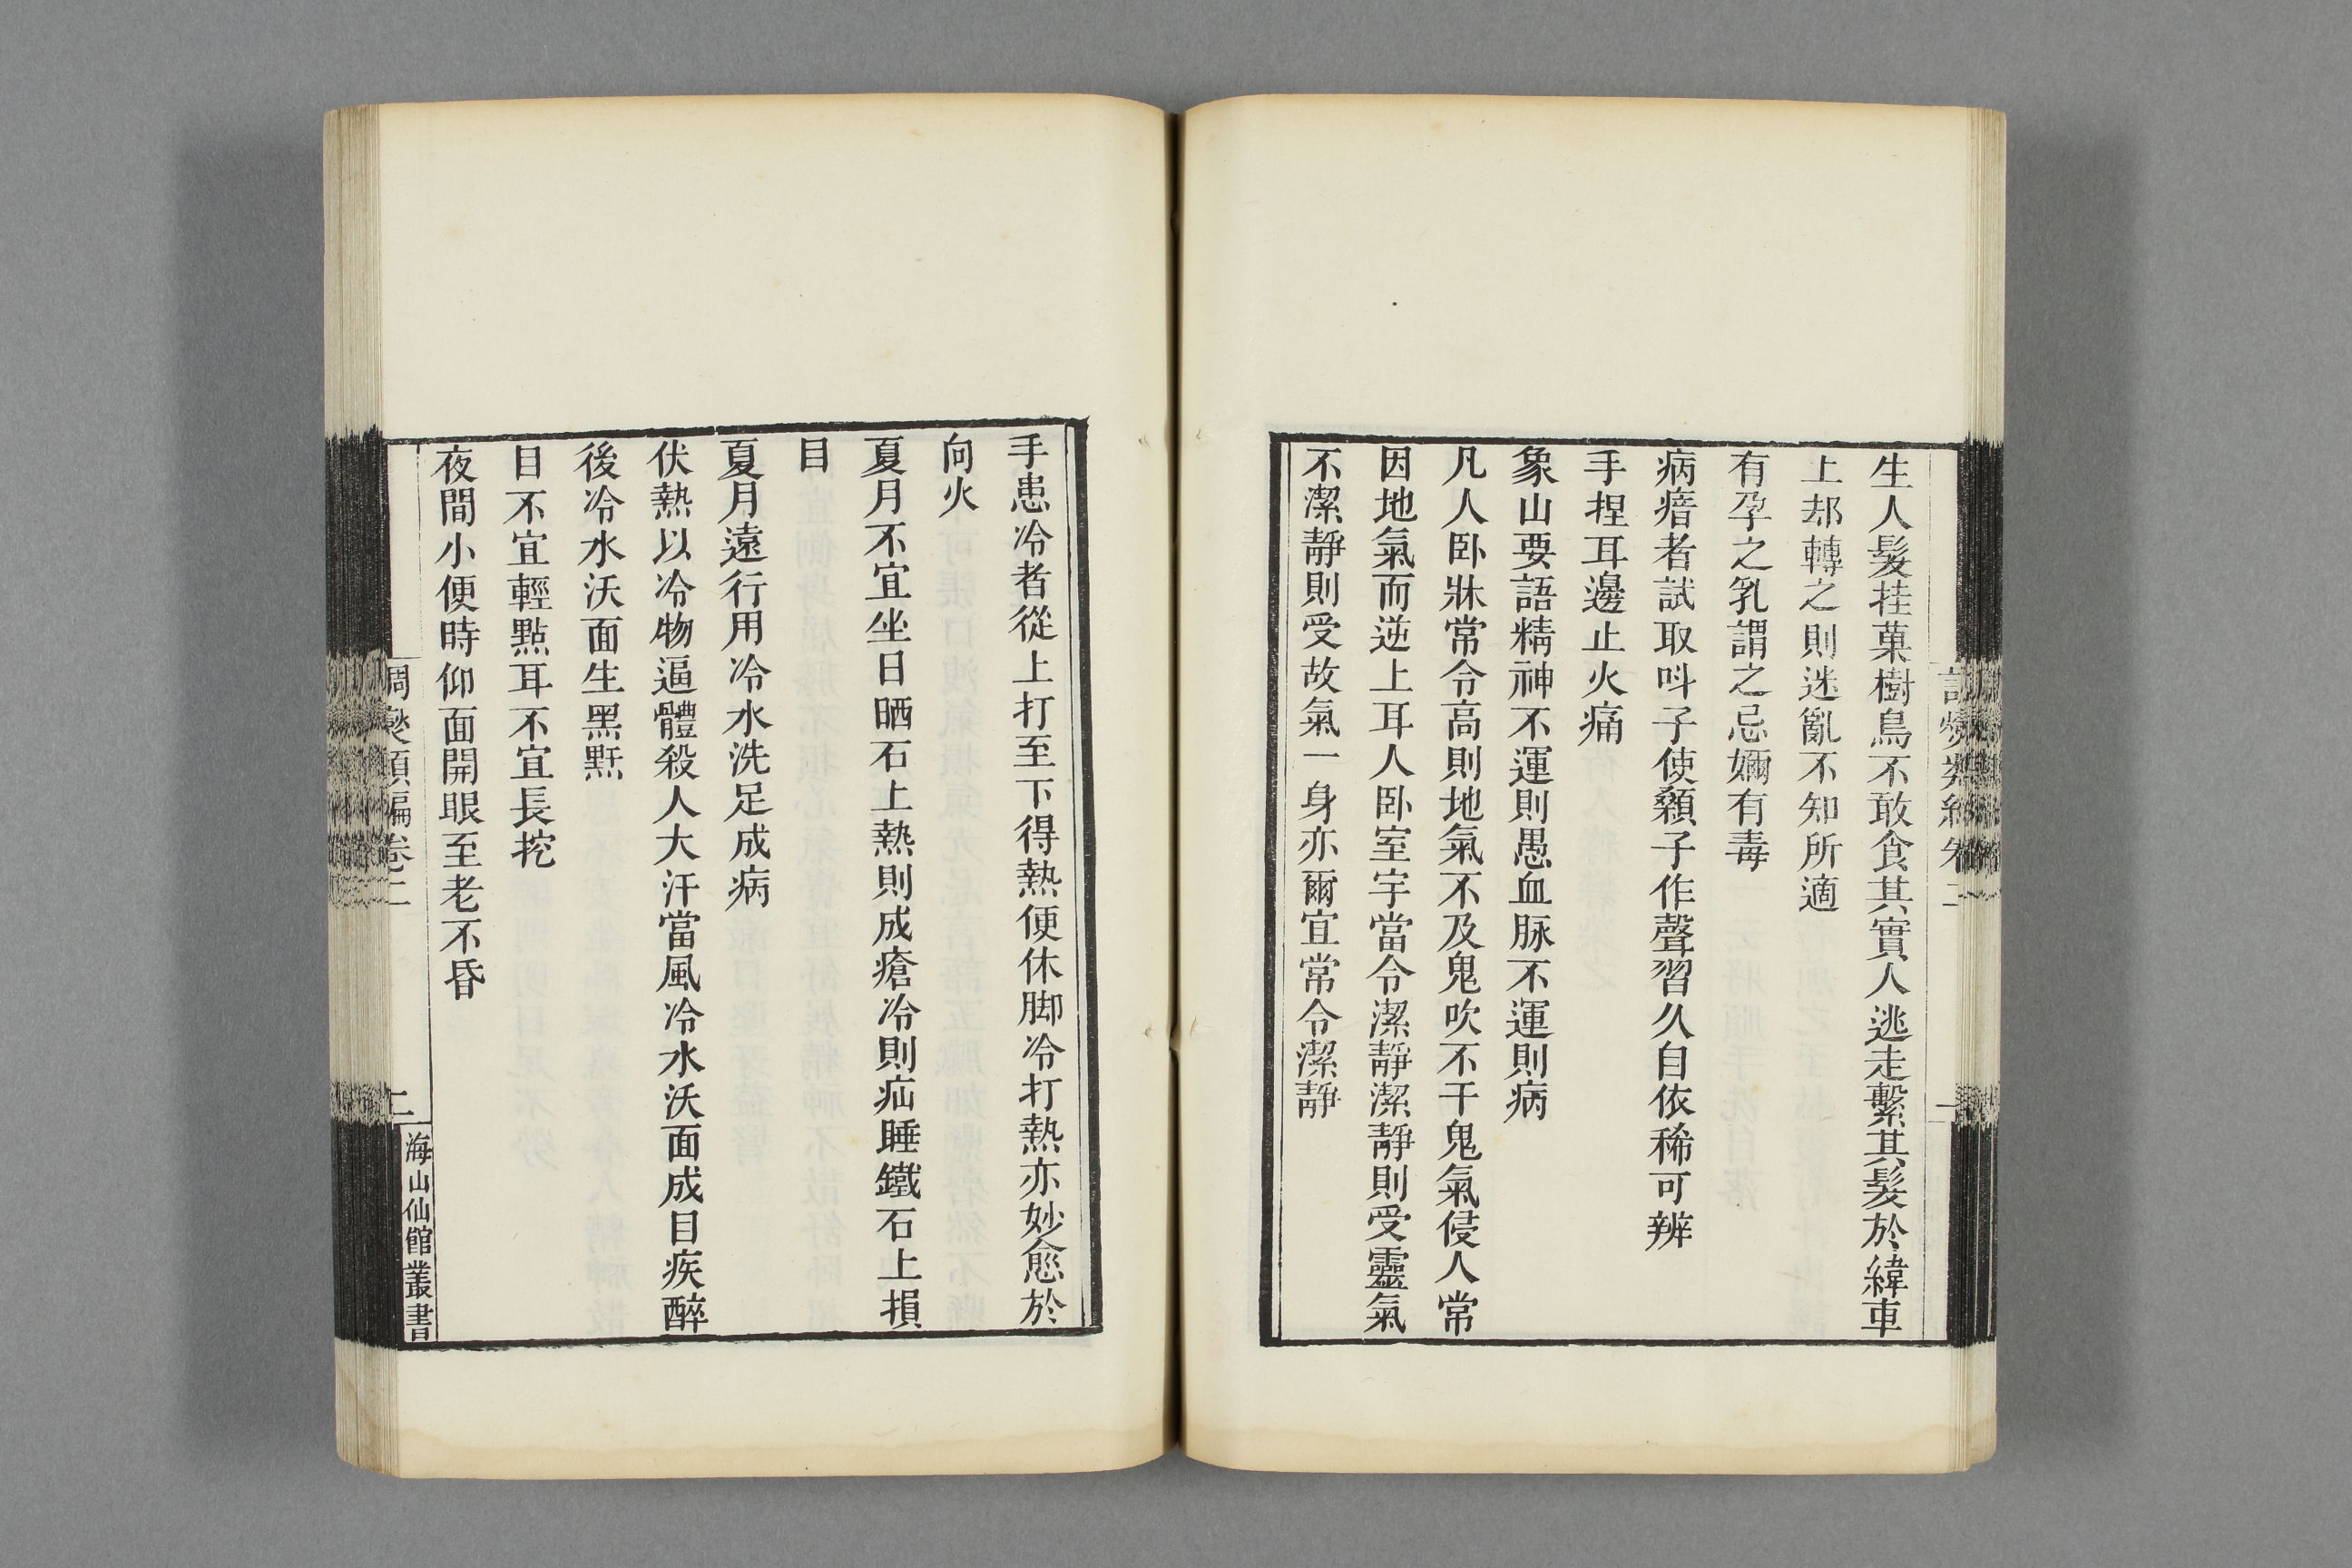 生人髮挂菓樹鳥不敢食其實人逃走繫其髮於緯車
上却轉之則迷亂不知所適
有孕之乳謂之忌嬭有毒
病瘖者試取呌子使顙子作聲習久自依稀可辨
手捏耳邊止火痛
象山要語精神不運則愚血脉不運則病
凡人卧牀常令高則地氣不及鬼吹不干鬼氣侵人常
因地氣而逆上耳人卧室宇當令潔靜潔靜則受靈氣
不潔靜則受故氣一身亦爾宜常令潔靜
手患冷者從上打至下得熱便休脚冷打熱亦妙愈於
向火
夏月不宜坐日晒石上熱則成瘡冷則疝睡鐵石上損
目
夏月遠行用冷水洗足成病
伏熱以冷物逼體殺人大汗當風冷水沃面成目疾醉
後冷水沃面生黑䵟
目不宜輕點耳不宜長挖
夜間小便時仰面開眼至老不昏
調燮類編卷二
二
海山仙館叢書